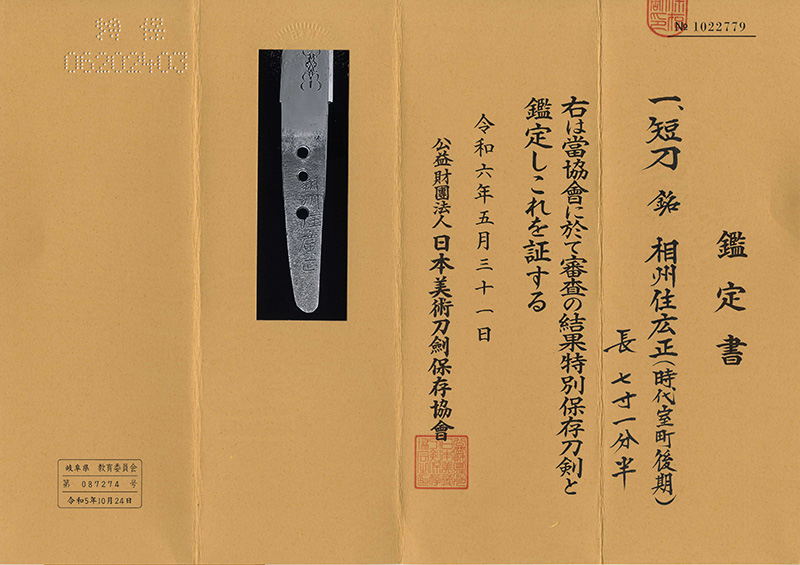 № 1022779
鑑定書
一、短刀 銘 相州住広正(時代室町後期)
長 七寸一分半
右は當協會に於て審査の結果特別保存刀剣と
鑑定しこれを証する
令和六年五月三十一日
公益財團法人 日本美術刀劍保存協會
特 保
06202403
岐阜県 教育委員会
第 087274 号
令和5年10月24日